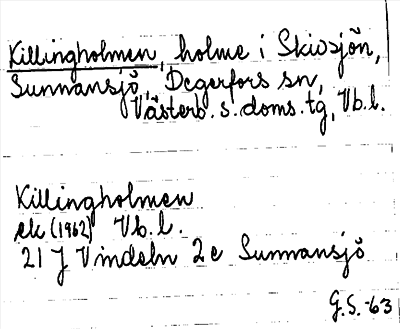 Killingholmen, holme i Skivsjön,
Sunnansjö, Degerfors sn,
Västerb. s. doms. tg, Vb. l.
Killingholmen
ek (1962) Vb. l.
21 J Vindeln 2 e Sunnansjö
G.S. -63